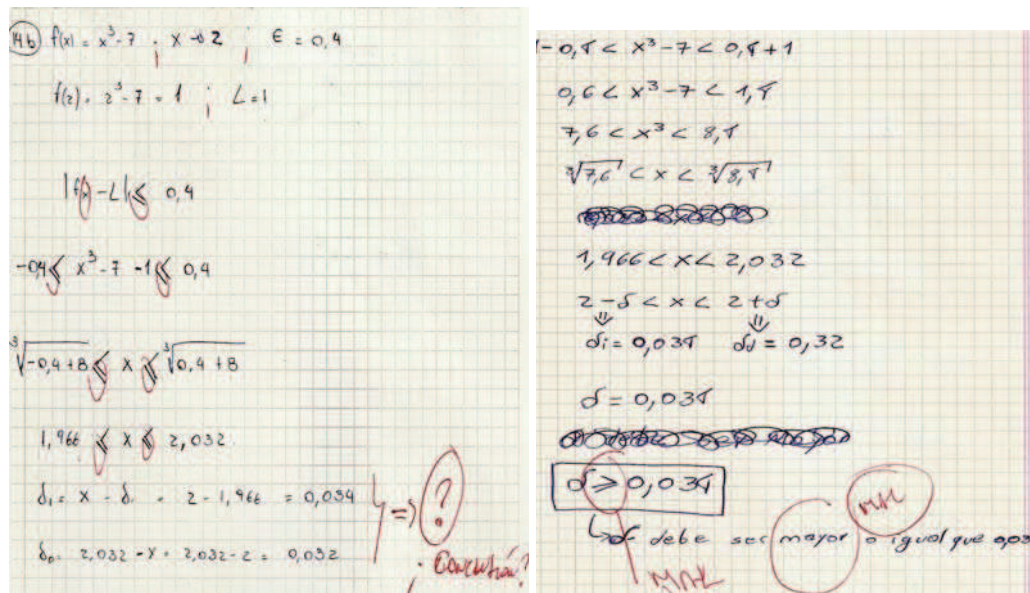 14b f(x) = x³-7 ; x→2 ; ε = 0,4
f(2) = 2³-7 = 1 ; L=1
|f(x) - L| ≤ 0,4
-0,4 ≤ x³-7 -1 ≤ 0,4
∛(-0,4+8) ≤ x ≤ ∛(0,4+8)
1,966 ≤ x ≤ 2,032
δ₁ = x - δ = 2 - 1,966 = 0,034
δ₀ = 2,032 - x = 2,032 - 2 = 0,032
} => ?
¿Conclusión?
1-0,4 < x³-7 < 0,4+1
0,6 < x³-7 < 1,4
7,6 < x³ < 8,4
∛7,6 < x < ∛8,4
1,966 < x < 2,032
2-δ < x < 2+δ
⇓ ⇓
δi = 0,034 δd = 0,32
δ = 0,034
δ ≥ 0,034
↳ δ debe ser mayor o igual que 0,03
MAL
MAL